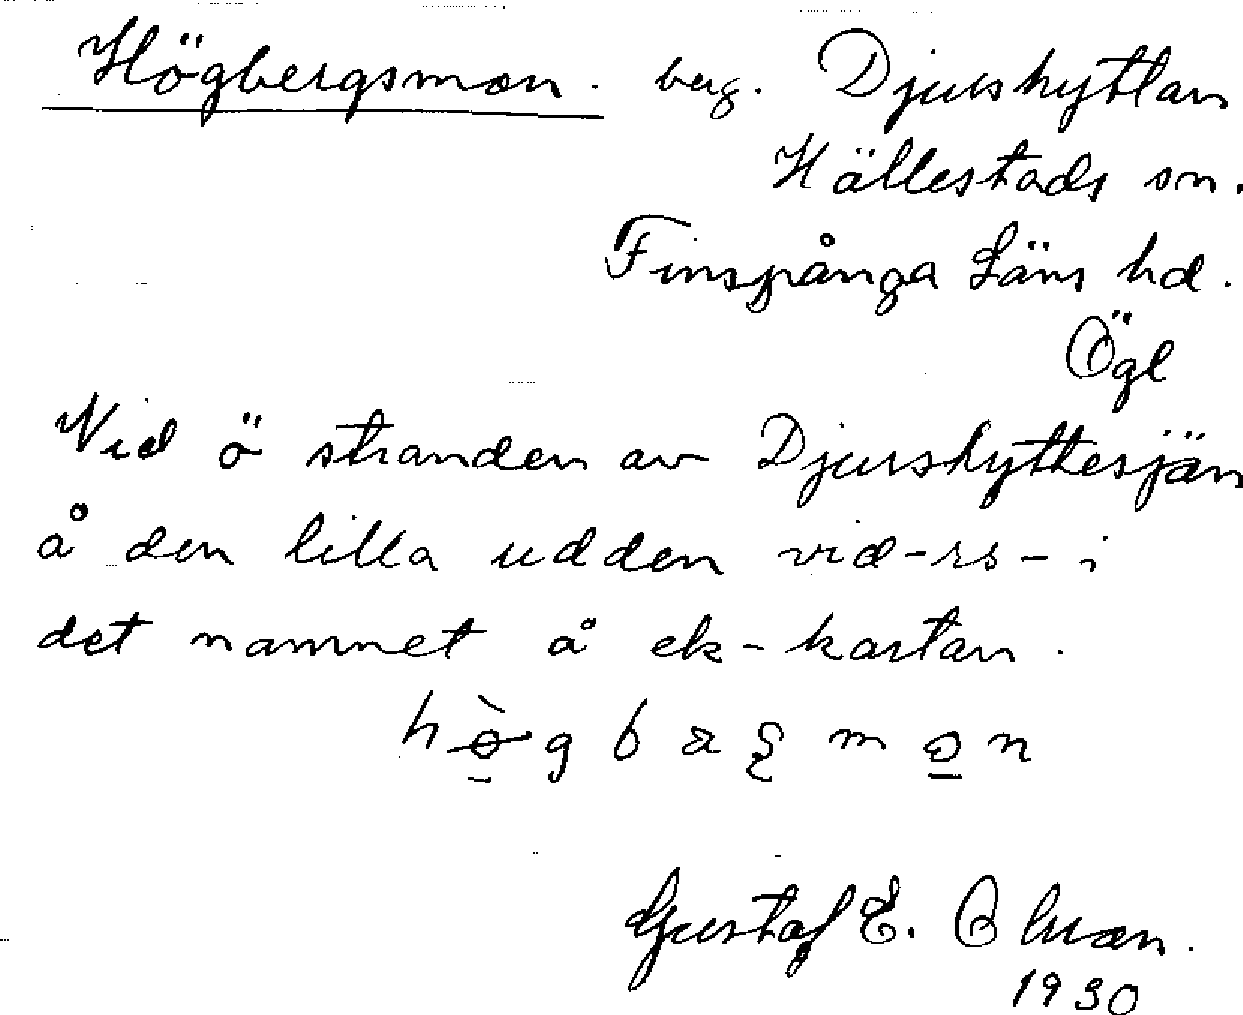 Högbergsmon. berg. Djurshyttan
Hällestads sn.
Finspånga Läns hd.
Ögl
Vid ö stranden av Djurshyttesjön
å den lilla udden vid -rs- i
det namnet å ek-kartan.
Gustaf E.
1930